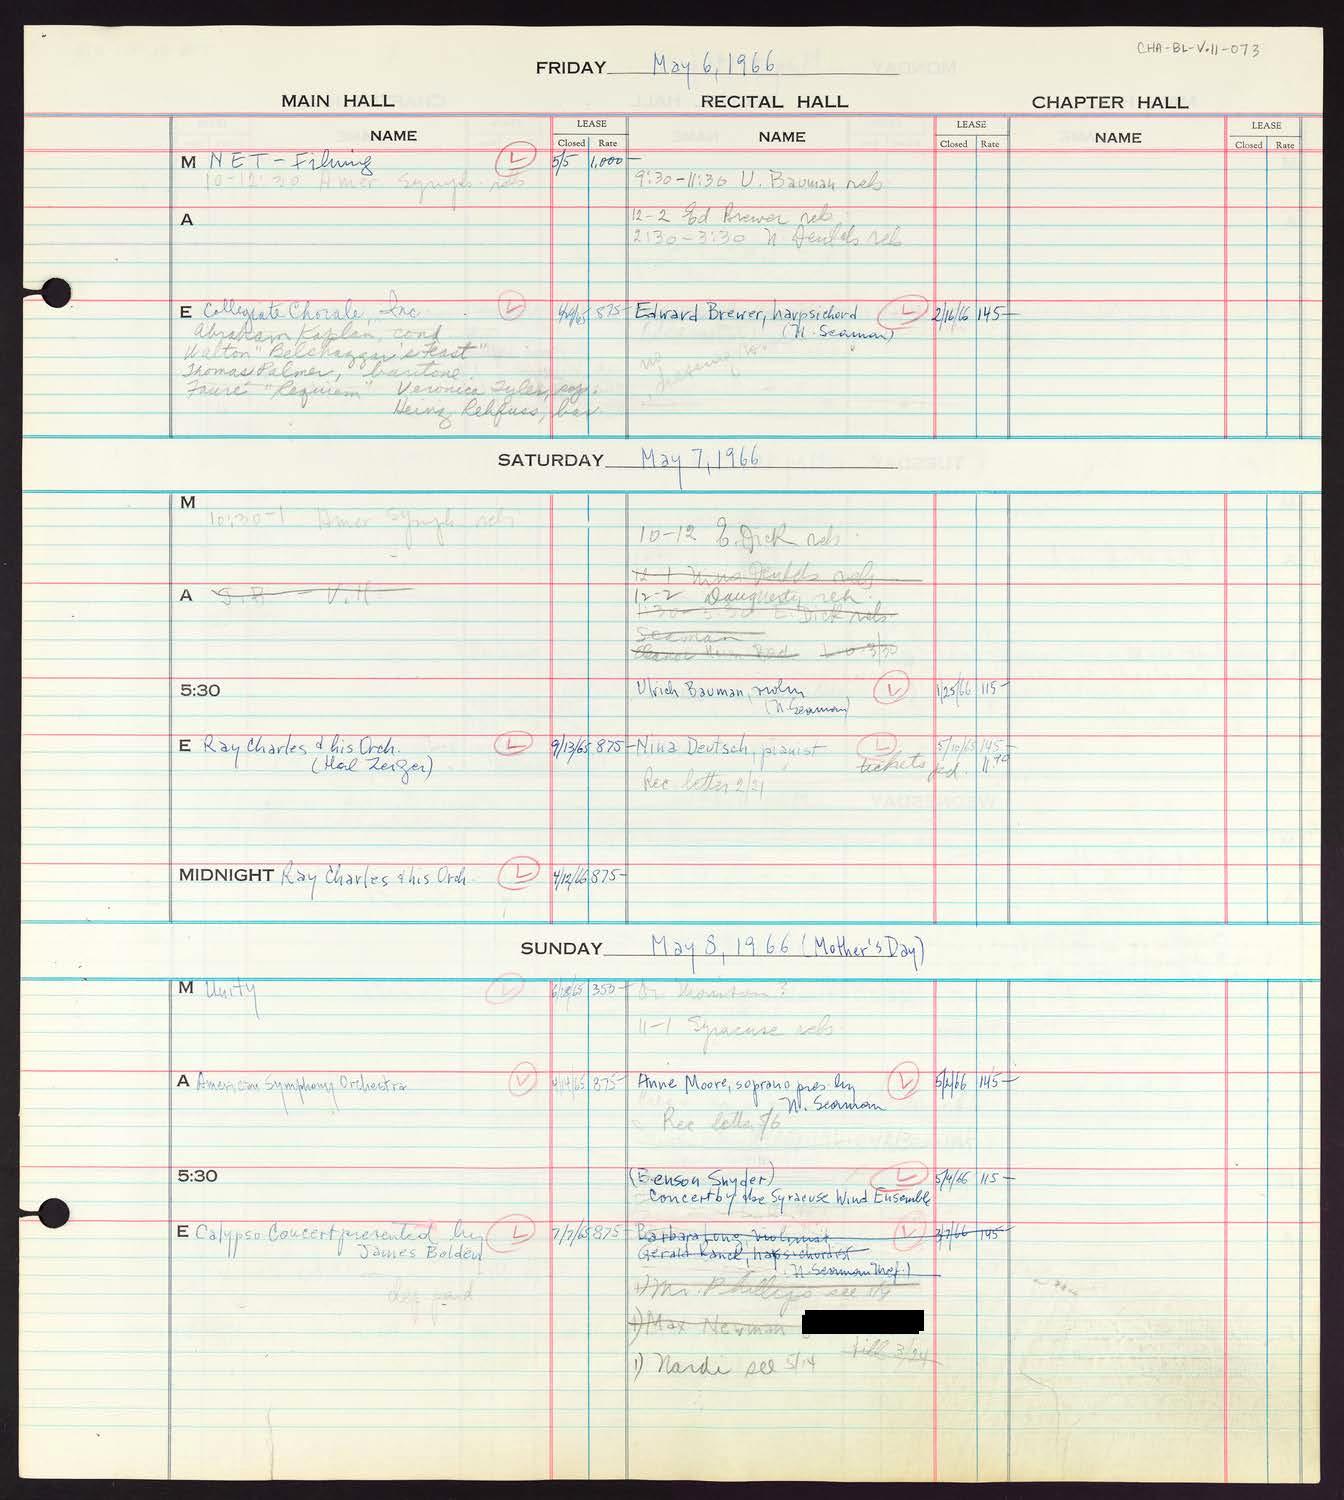 CHA-BL-V.11-073
FRIDAY May 6, 1966
MAIN HALL RECITAL HALL CHAPTER HALL
NAME LEASE NAME LEASE NAME LEASE
Closed Rate Closed Rate Closed Rate
M NET - Filming L 5/5 1,000-
10-12:30 Amer Symph. reh 9:30-11:30 U. Bauman reh
A 12-2 Ed Brewer reh
2:30-3:30 N Deutsch reh
E Collegiate Chorale, Inc. L 875- Edward Brewer, harpsichord L 2/16/66 145-
(N. Seaman)
Abraham Kaplan, cond
Walton "Belshazzar's Feast"
Thomas Palmer, baritone
Fauré "Requiem" Veronica Tyler, sop.
Heinz Rehfuss, bar.
no
SATURDAY May 7, 1966
M
10:30-1 Amer Symph reh
10-12 E. Dick reh
12-1 Nina Deutsch reh
A S.R. - V.H.
12-2 Daugherty reh.
1:30-3:30 E. Dick reh
Seaman
3/30
5:30 Ulrich Bauman, violin L 1/25/66 115-
(N. Seaman)
E Ray Charles & his Orch. L 9/13/65 875- Nina Deutsch, pianist L 5/10/65 145-
(Hal Zeiger) tickets pd. 11.70
Rec. letter 2/21
MIDNIGHT Ray Charles & his Orch. L 4/12/66 875-
SUNDAY May 8, 1966 (Mother's Day)
M Unity L 350- Dr.
11-1 Syracuse reh
A American Symphony Orchestra L 4/14/65 875- Anne Moore, soprano pres. by L 5/2/66 145-
N. Seaman
Rec letter 5/6
5:30 (Benson Snyder) L 5/4/66 115-
Concert by the Syracuse Wind Ensemble
E Calypso Concert presented by L 7/7/65 875- Barbara Long, violinist L 3/7/66 145-
James Bolden Gerald Ranck, harpsichordist
(N. Seaman Mgt.)
dep paid 1) Mr. Phillips see 1/9
1) Max Newman
till 3/24
1) Nardi see 5/14